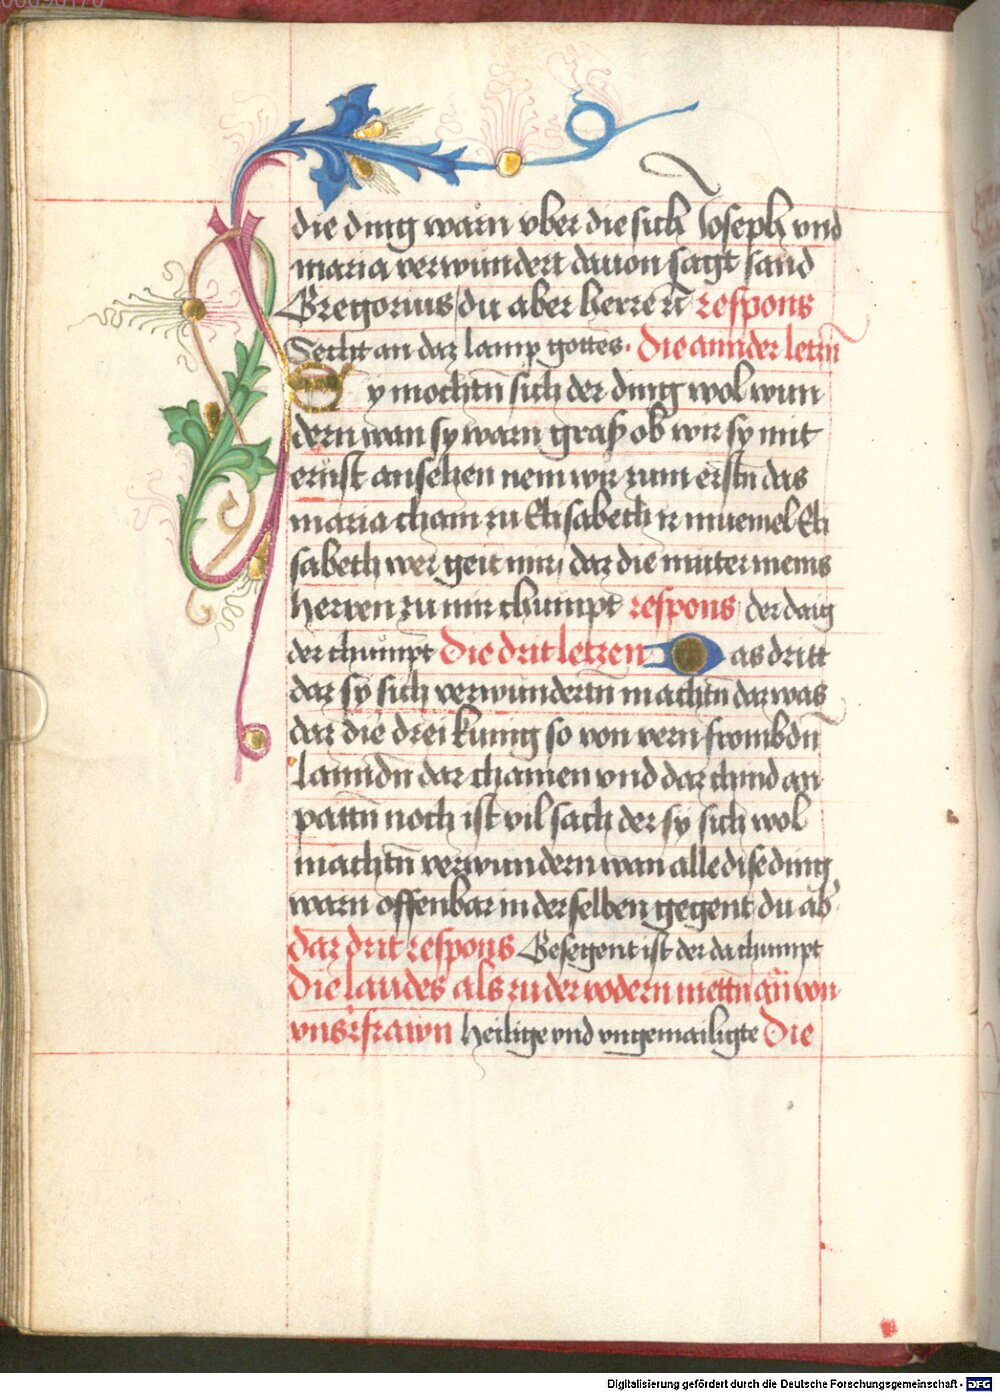 die ding warn vber die sich Joseph vnd
maria verwundert dauon sagt sand
Gregorius du aber herre rc respons
Secht an daz lamp gottes. Die annder letzn
Sy mochtn sich der ding wol wun
dern wan sy warn gras ob wir sy mit
ernst ansehen nem wir zum erstn das
maria cham zu Elisabeth ir muemel Eli
sabeth wer geit mir daz die muter meins
herren zu mir chumpt respons der daig
der chumpt Die drit letzen Das dritt
daz sy sich verwundertn machtn daz was
daz die drei kunig so von vern frombdn
lanndn dar chamen vnd daz chind an
pattn noch ist vil sach der sy sich wol
machtn verwundern wan alle dise ding
warn offenbar in der selben gegent du ab
daz drit respons Gesegent ist der da chumpt
Die laudes als zu der vodern mettn an von
vnsr frawn Heilige vnd vngemailigte Die
Digitalisierung gefördert durch die Deutsche Forschungsgemeinschaft - DFG